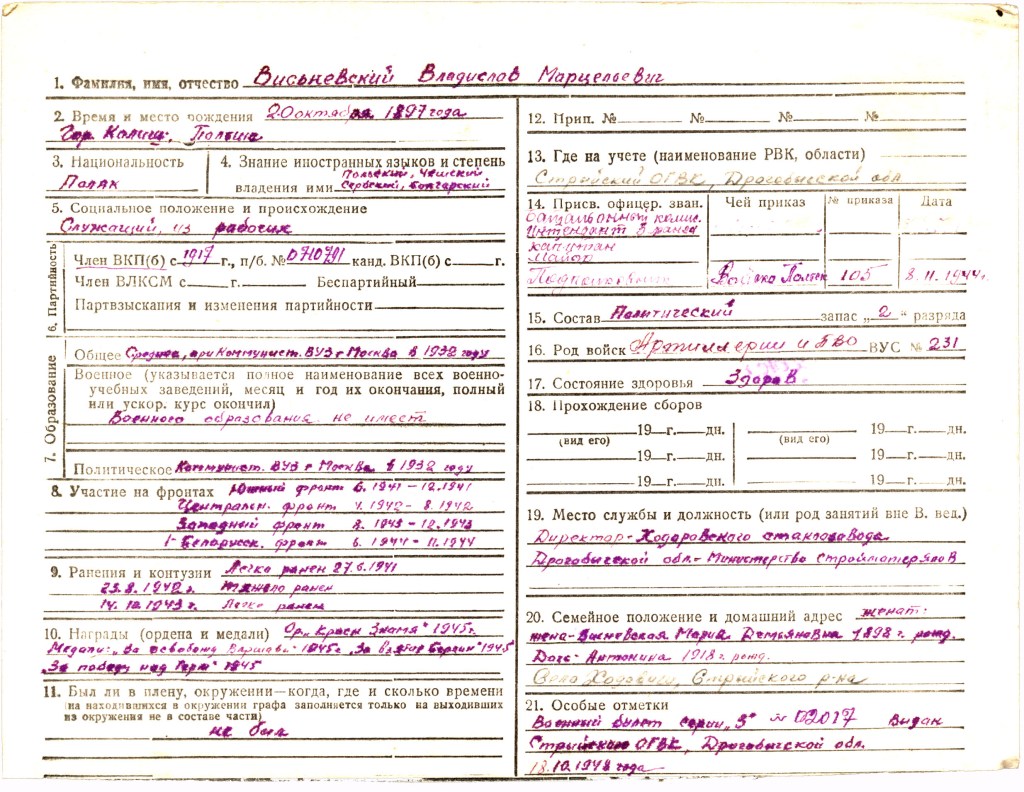 1. Фамилия, имя, отчество Висьневский Владислав Марцельевич
2. Время и место рождения 20 октября 1897 года
Гор. Калиш, Польша
3. Национальность
Поляк
4. Знание иностранных языков и степень
владения ими Польский, Чешский
Сербский, Болгарский
5. Социальное положение и происхождение
Служащий, из рабочих
6. Партийность
Член ВКП(б) с 1917 г., п/б. № 0710791 канд. ВКП(б) с г.
Член ВЛКСМ с г. Беспартийный
Партвзыскания и изменения партийности
7. Образование
Общее Среднее, при Коммунист. ВУЗ г Москва в 1932 году
Военное (указывается полное наименование всех военно-
учебных заведений, месяц и год их окончания, полный
или ускор. курс окончил)
Военного образования не имеет
Политическое Коммунист. ВУЗ г Москва в 1932 году
8. Участие на фронтах Южный фронт 6.1941 – 12.1941
Централь. фронт 4.1942 – 8.1942
Западный фронт 8.1943 – 12.1943
1-Беларусск. фронт 6.1944 – 11.1944
9. Ранения и контузии Легко ранен 27.6.1941
23.8.1942 г. тяжело ранен
14.12.1943 г. Легко ранен
10. Награды (ордена и медали) Ор. „Красн Знамя" 1945г.
Медали: „За освобожд Варшавы" 1945г „За взятие Берлин" 1945
„За победу над Герм" 1945
11. Был ли в плену, окружении—когда, где и сколько времени
(на находившихся в окружении графа заполняется только на выходивших
из окружения не в составе части)
не был
12. Прип. № № № №
13. Где на учете (наименование РВК, области)
Стрийский ОГВК, Дрогобычской обл
14. Присв. офицер. зван. Чей приказ № приказа Дата
батальонный комис.
Интендант 3 ранга
капитан
майор
Подполковник Войско Польск 105 8.11.1944г.
15. Состав Политический запас „2" разряда
16. Род войск Артиллерии и ПВО ВУС № 231
17. Состояние здоровья Здоров.
18. Прохождение сборов
19 г. дн. 19 г. дн.
(вид его) (вид его)
19 г. дн. 19 г. дн.
19 г. дн. 19 г. дн.
19. Место службы и должность (или род занятий вне В. вед.)
Директор - Ходоровского станкозавода
Дрогобычской обл. - Министерство Стройматерялов
20. Семейное положение и домашний адрес женат:
жена - Висневская Мария Демьяновна 1898 г. рожд.
Дочь - Антонина 1918 г. рожд.
Село Ходовичи, Стрыйского р-на
21. Особые отметки
Военный билет серии „З" № 02017 Выдан
Стрийским ОГВК, Дрогобычской обл.
18.10.1948 года